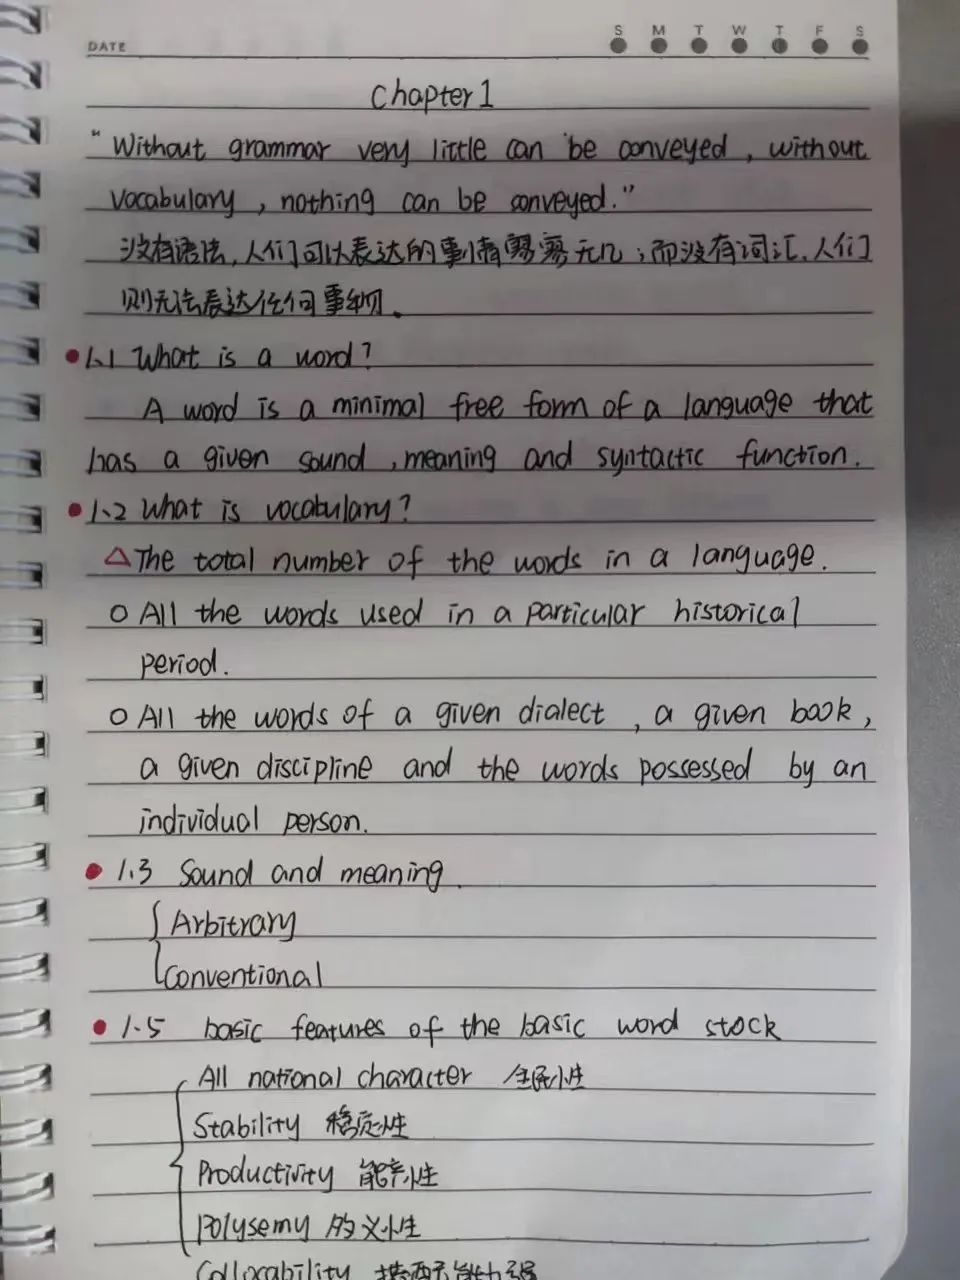 DATE
S M T W T F S
Chapter 1
"Without grammar very little can be conveyed, without
vocabulary, nothing can be conveyed."
没有语法,人们可以表达的事情寥寥无几;而没有词汇,人们
则无法表达任何事物。
1.1 What is a word?
A word is a minimal free form of a language that
has a given sound, meaning and syntactic function.
1.2 What is vocabulary?
△The total number of the words in a language.
○ All the words used in a particular historical
period.
○ All the words of a given dialect, a given book,
a given discipline and the words possessed by an
individual person.
1.3 Sound and meaning.
Arbitrary
Conventional
1.5 basic features of the basic word stock
All national character 全民性
Stability 稳定性
Productivity 能产性
Polysemy 的义性
Collocability 搭配能力强